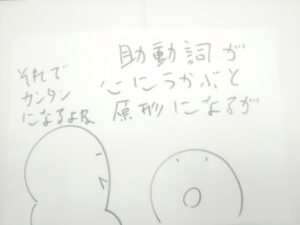 助動詞が
心にうかぶと
原形になるが
それで
カンタン
になるよな